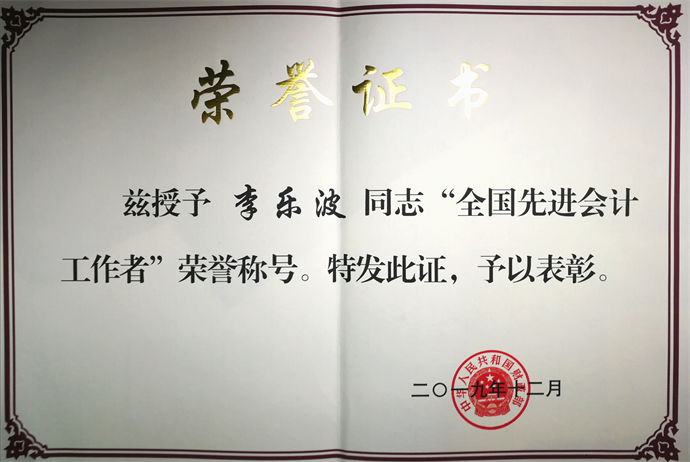 荣誉证书
兹授予 李乐波 同志“全国先进会计
工作者”荣誉称号。特发此证，予以表彰。
中华人民共和国财政部
二〇一九年十二月